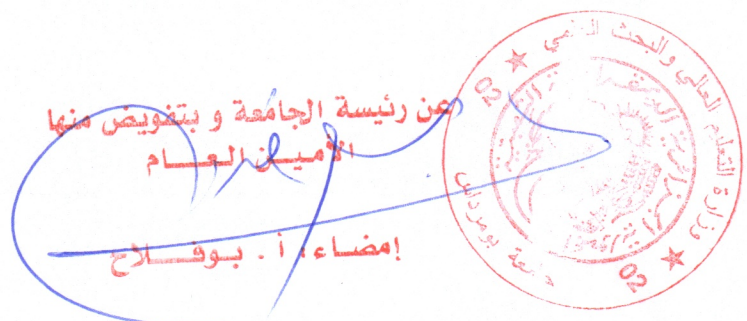 عن رئيسة الجامعة و بتفويض منها
الأميـن العـــام
إمضـاء، أ . بـوفـــلاح
وزارة التعليم العالي والبحث العلمي
02 ★ جامعة بومرداس ★ 02